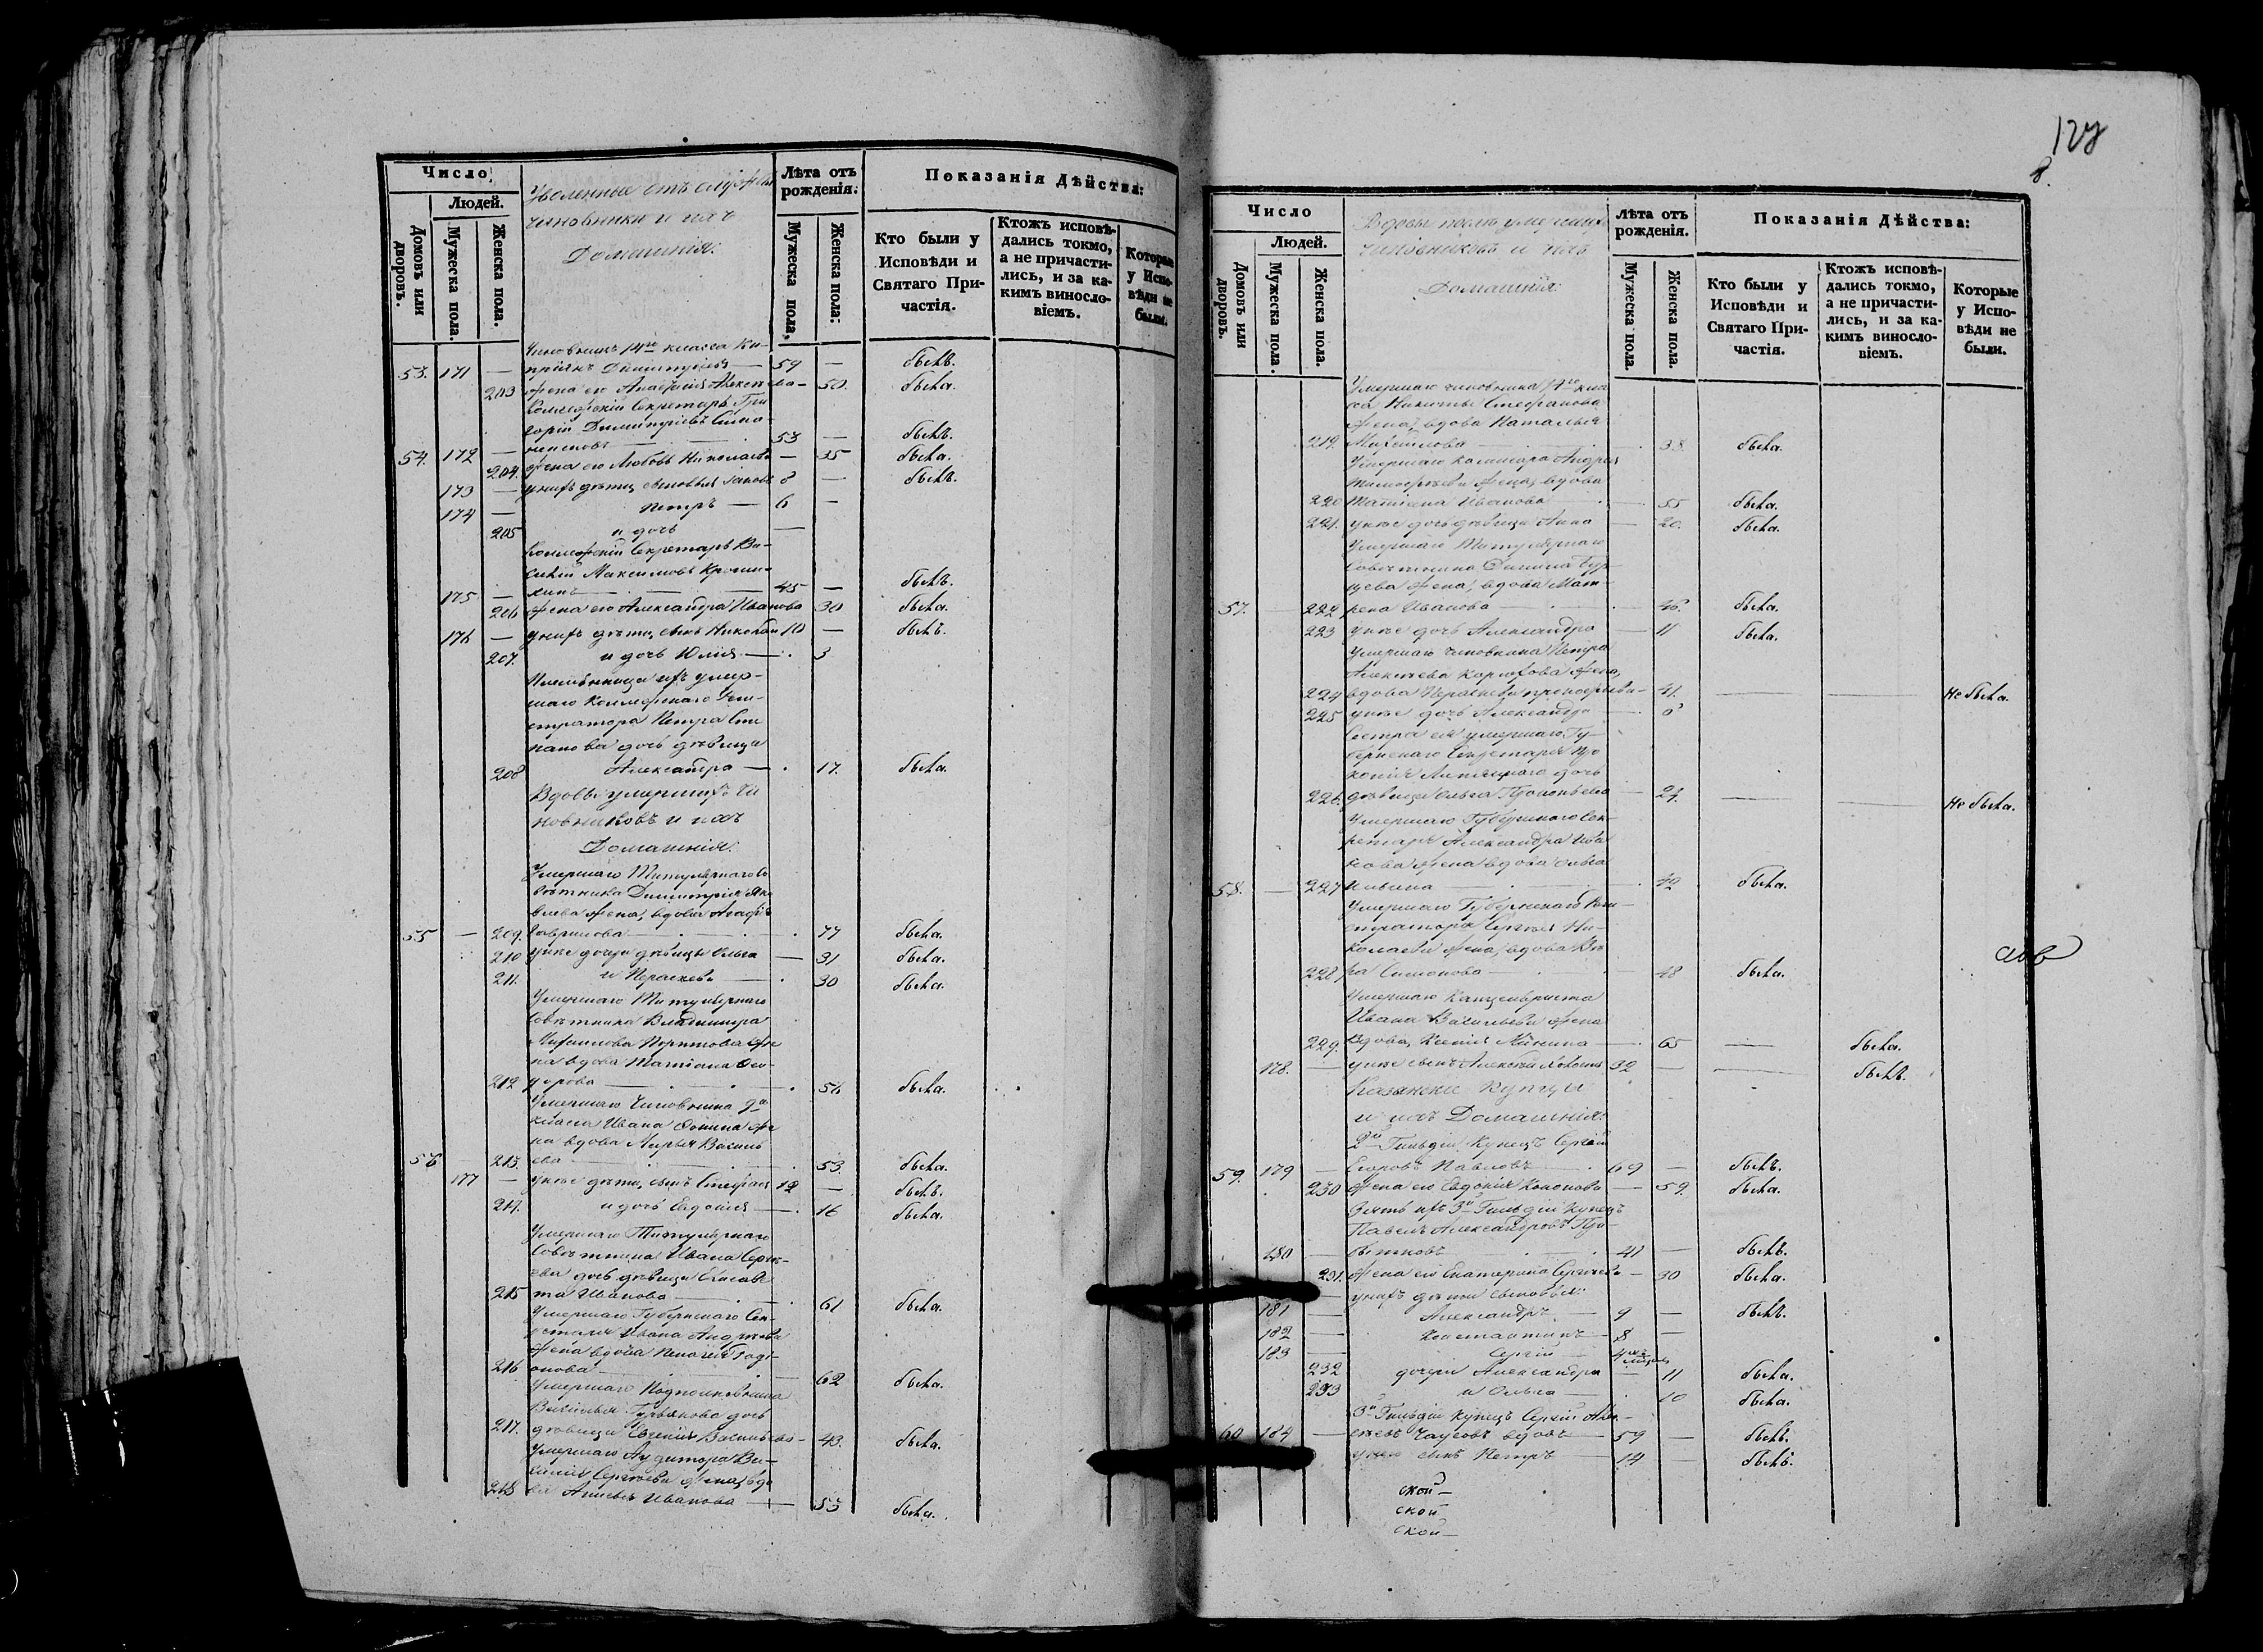 Число
Людей.
Домовъ или дворовъ.
Мужеска пола.
Женска пола.
Уволенные отъ службы
чиновники и ихъ
Домашнія:
Лѣта отъ рожденія:
Мужеска пола,
Женска пола:
Показанія Дѣйства:
Кто были у Исповѣди и Святаго Причастія.
Ктожъ исповѣдались токмо, а не причастились, и за какимъ винословіемъ.
Которые у Исповѣди не были.
Чиновникъ 14го класса Ки-
53. 171 — пріянъ Димитріевъ — 59 — былъ.
203 жена его Алексѣева — 50. была.
Коллежскій Секретарь Гри-
горій Димитріевъ
54. 172 — 53 — былъ.
204. жена его Любовь Николаева — 35 была.
173 — у нихъ дѣти, сыновья 8 — былъ.
174 — Петръ — 6 —
205 и дочь —
Коллежскій Секретарь Ва-
силій Максимовъ
175 — 45 — былъ.
206 жена его Александра Иванова 30 была.
176 — у нихъ дѣти, сынъ Николай 10 — былъ.
207. и дочь Юлія — 3
Племянница ихъ умер-
шаго Коллежскаго Реги-
стратора Петра Сте
панова дочь дѣвица
208 Александра — 17. была.
Вдовы умершихъ Чи
новниковъ и ихъ
Домашнія:
Умершаго Титулярнаго Со
вѣтника Димитрія Яко
влева жена, вдова Агафія
55 — 209. Гаврилова — 77 была.
210 у нее дочери дѣвицы Ольга — 31 была.
211. и Параскева — 30 была.
Умершаго Титулярнаго
Совѣтника Владимира
Михайлова же
на вдова Татіана Ѳео-
212 дорова — 56 была.
Умершаго Чиновника 9го
класса Ивана Фокина же
на вдова Марья Василь
56 — 213. ева — 53. была.
177 — у нее дѣти, сынъ Стефанъ 12 — былъ.
214. и дочь Евдокія — 16 была.
Умершаго Титулярнаго
Совѣтника Ивана Серге-
ева дочь дѣвица Елисаве
215 та Иванова — 61 была.
Умершаго Губернскаго Сек-
ретаря Ивана Андреева
жена вдова Пелагея
216 62 была.
Умершаго Подполковника
Василья дочь
217. дѣвица Евгенія Васильева — 43. была.
Умершаго Аудитора Ва-
силія Сергѣева жена, вдо
218 ва Анисья Иванова — 53 была.
127
8.
Число
Людей.
Домовъ или дворовъ.
Мужеска пола.
Женска пола.
Вдовы послѣ умершихъ
чиновниковъ и ихъ
Домашнія:
Лѣта отъ рожденія.
Мужеска пола
Женска пола.
Показанія Дѣйства:
Кто были у Исповѣди и Святаго Причастія.
Ктожъ исповѣдались токмо, а не причастились, и за какимъ винословіемъ.
Которые у Исповѣди не были.
Умершаго чиновника 14го кла
сса Никиты Стефанова
жена, вдова Наталья
219. Михайлова 38. была.
Умершаго Андрея
Тимофѣева жена, вдова
220 Татіана Иванова — 55 была.
221. у нее дочь дѣвица Анна — 20. была.
Умершаго Титулярнаго
Совѣтника
жена, вдова Мат-
57. — 222 рена Иванова — 46. была.
223 у нее дочь Александра — 11 была.
Умершаго чиновника Петра
Алексѣева жена,
224 вдова Параскева Прокофьева — 41. — — Не была.
225 у нее дочь Александра — 8
Сестра ея умершаго Гу-
бернскаго Секретаря Про
копія дочь
226. дѣвица Ольга Прокопьева — 24. — — Не была.
Умершаго Губернскаго Сек-
ретаря Александра
жена вдова Ольга
58. — 227 Ильина — 42 была.
Умершаго Губернскаго Реги-
стратора Сергѣя Ни-
колаева жена, вдова Вѣ
228 ра Симонова — 48 была.
Умершаго Канцеляриста
Ивана Васильева жена
229. вдова, Ксенія — 65 — была.
178. — у нее сынъ Алексѣй 32 — — былъ.
Казанскіе Купцы
и ихъ Домашнія:
2й Гильдіи Купецъ Сергѣй
59. 179 — Егоровъ Павловъ 69 — былъ.
230 жена его Евдокія Кононова — 59. была.
Зять ихъ 3й Гильдіи Купецъ
Павелъ Александровъ
180 — 41 — былъ.
231. жена его Екатерина Сергѣева — 30 была.
у нихъ дѣти сыновья:
181 — Александръ — 9 — былъ.
182 — Константинъ — 8 —
183 — Сергій — 4
232 дочери Александра — 11 была.
233 и Ольга — 10 была.
3й Гильдіи Купецъ Сергѣй Але-
60 184 — ксѣевъ Чаусовъ вдовъ — 59 — былъ.
у него сынъ Петръ — 14 — былъ.
ской —
ской
ской —